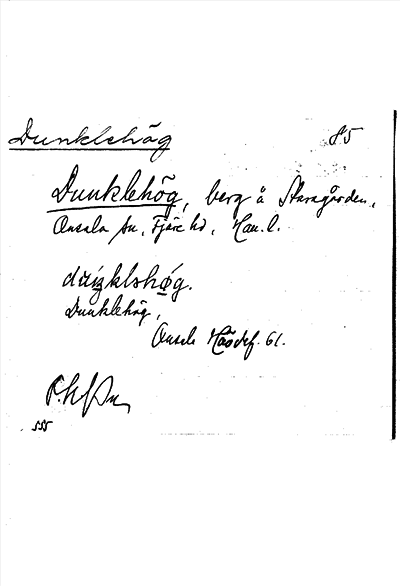 Dunklehög 85
Dunklehög, berg å Staragården,
Onsala sn, Fjäre hd, Hall. l.
Dunklehög,
Onsala
61.
555